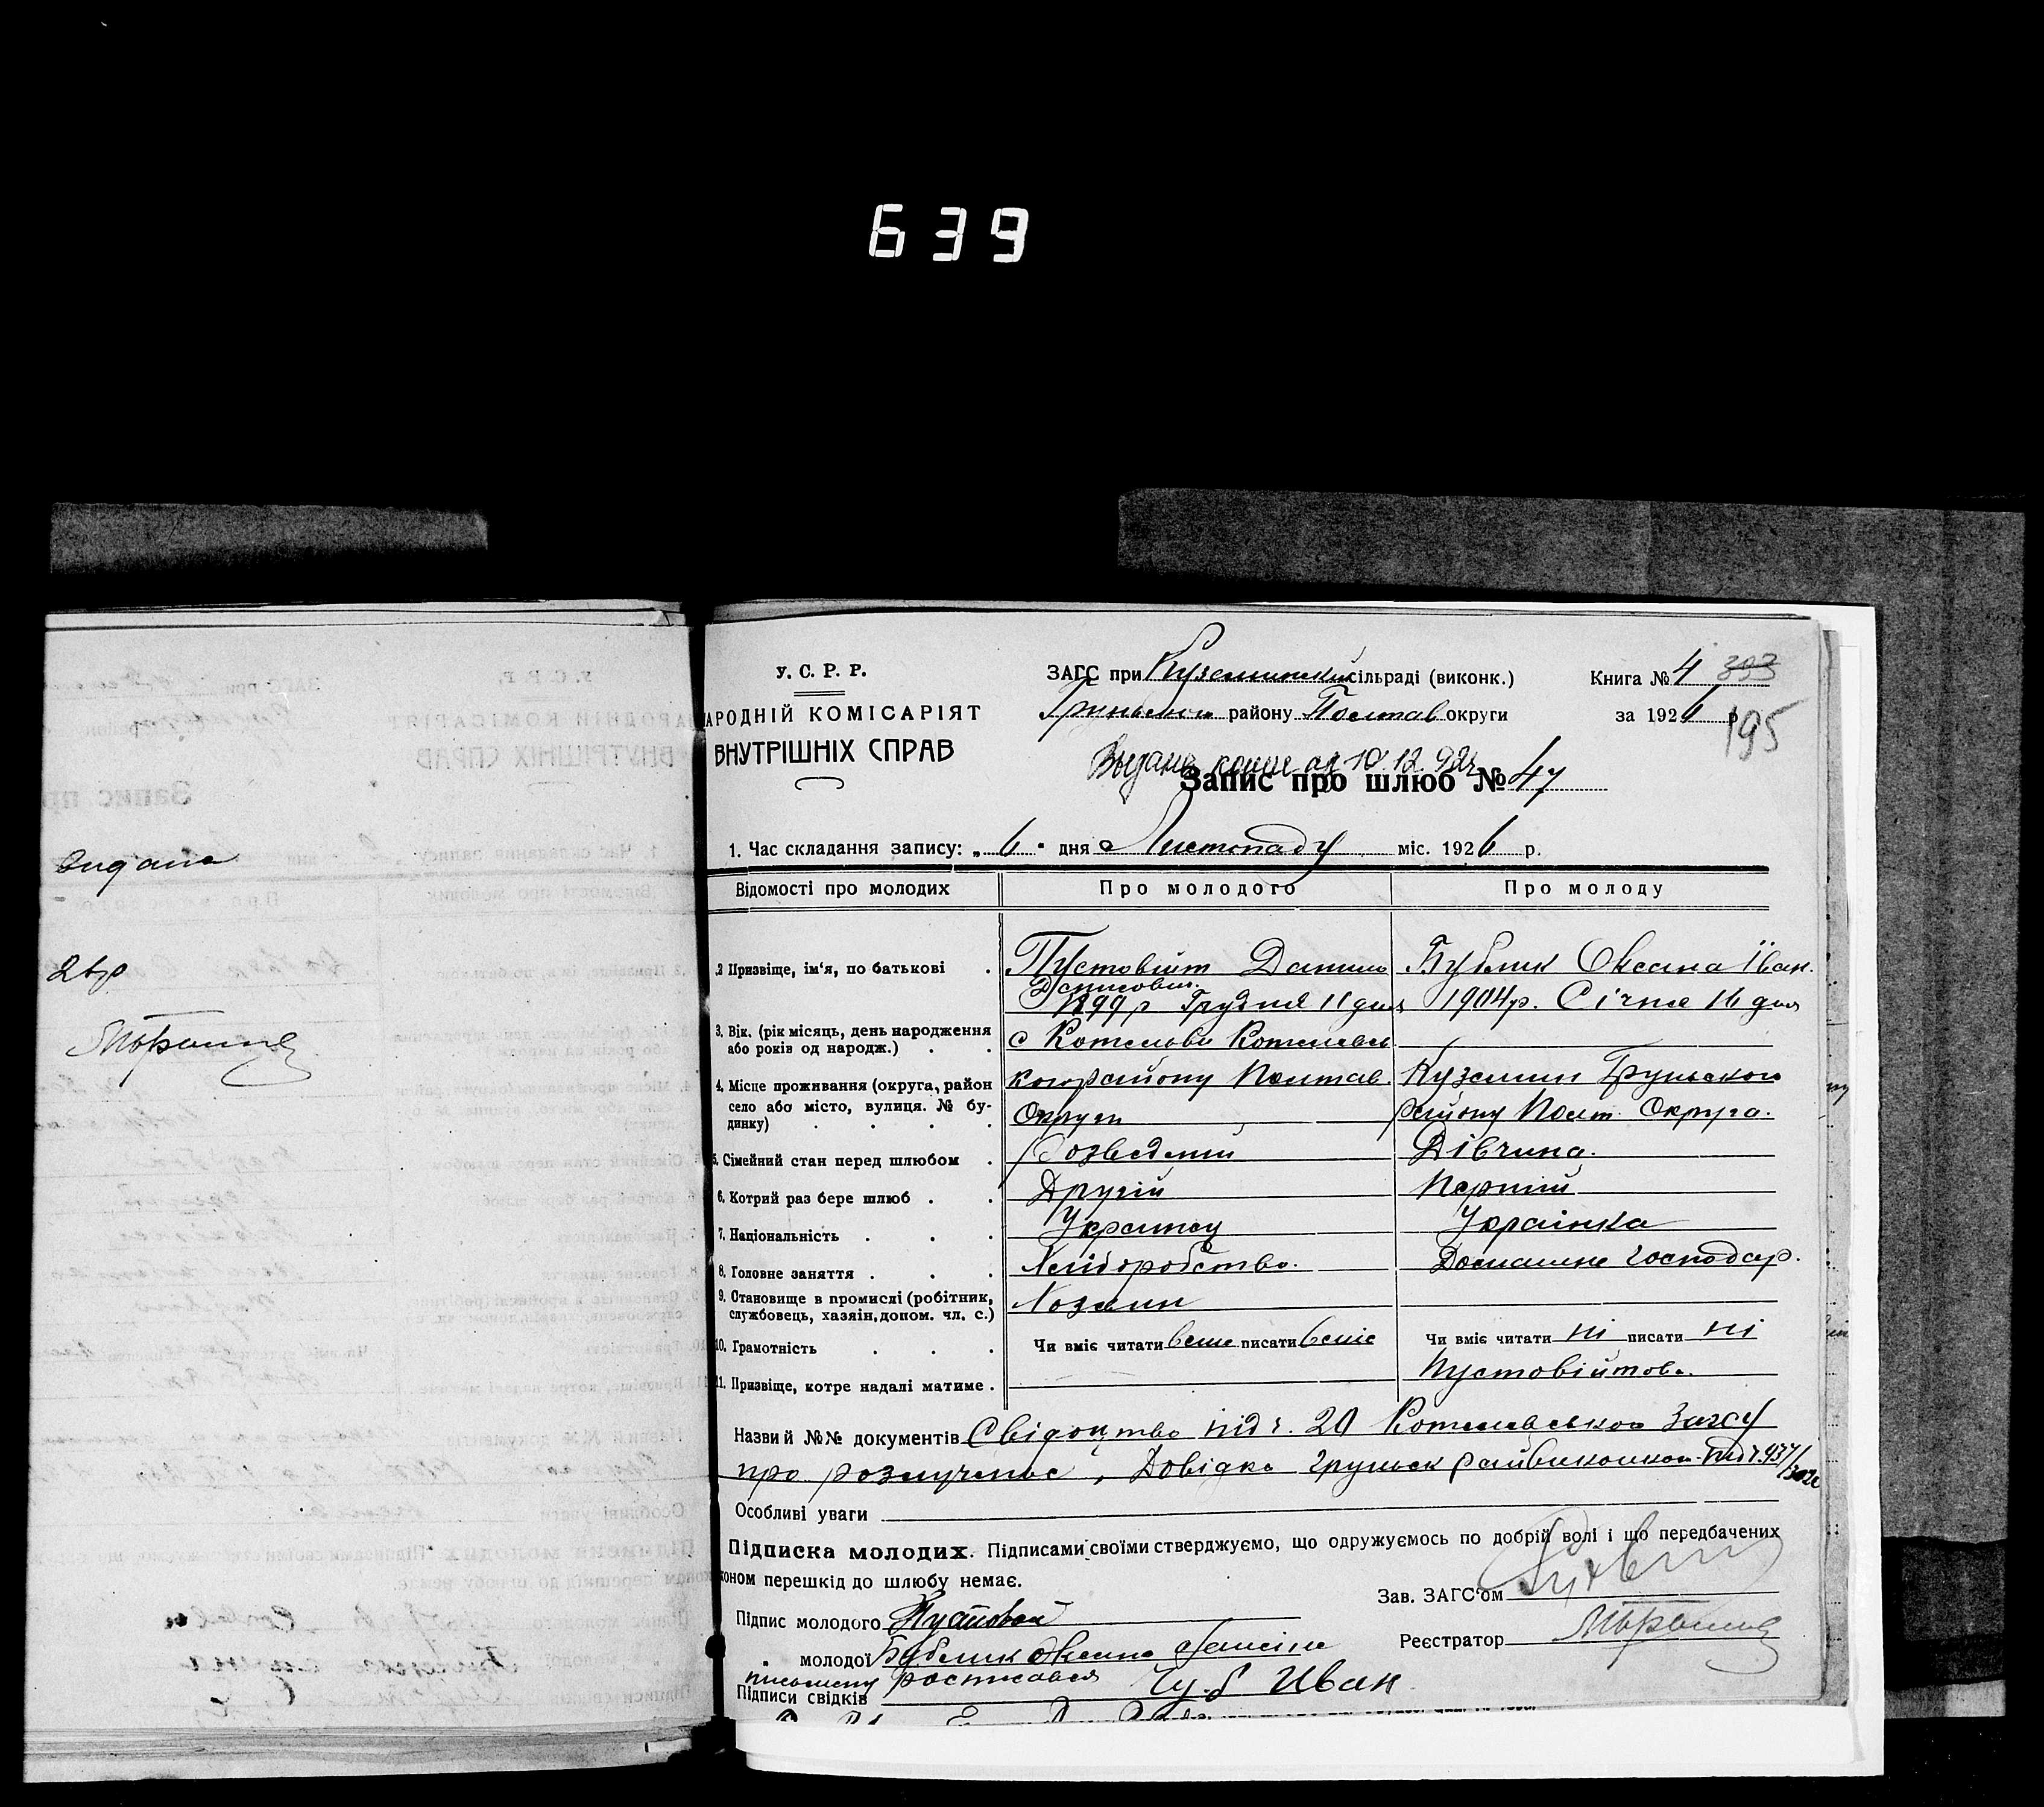 639
видана
2 кр
У. С. Р. Р.
АРОДНІЙ КОМІСАРІЯТ
ВНУТРІШНІХ СПРАВ
ЗАГС при Куземинській сільраді (виконк.)
Груньском району Полтав округи
Книга № 4 393
за 1926 р
195
Выдано копие 10.12.92г
Запис про шлюб № 47
1. Час складання запису: „ 6 " дня Листопаду міс. 1926 р.
Відомості про молодих Про молодого Про молоду
2 Призвіще, ім'я, по батькові . Пустовійт Данило Бублик Оксана Іван.
Денисович.
1899 р Грудня 11 дня 1904р. Січня 16 дня
3. Вік. (рік місяць, день народження
або років од народж.) . . с Котельви Котелевсь
4. Місце проживання (округа, район
село або місто, вулиця. № бу-
динку) . . . .
кого району Полтав. Куземин Груньского
Округи району Полт. Округа.
5. Сімейний стан перед шлюбом . Розведений Дівчина.
6. Котрий раз бере шлюб . . Другій Перший
7. Національність . . . Украінец Украінка
8. Головне заняття . . . Хліборобство. Домашне господар.
9. Становище в промислі (робітник,
службовець, хазяін, допом. чл. с.) Хозяин
10. Грамотність . . . Чи вміє читати вміє писати вміє Чи вміє читати ні писати ні
11. Призвіще, котре надалі матиме . Пустовійтова.
Назви й №№ документів Свідоцтво під ч. 20 Котелевського Загсу
про розлученнє, Довідка Груньск райвиконком. під ч. 937/
Особливі уваги
Підписка молодих. Підписами своїми стверджуємо, що одружуємось по добрій волі і що передбачених
коном перешкід до шлюбу немає.
Зав. ЗАГС'ом
Підпис молодого Пустовой
Реєстратор
" молодої Бублик Оксана
письмену росписався Чуб Иван
Підписи свідків